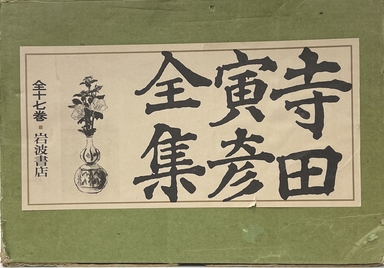 寺田
寅彦
全集
全十七巻 ■ 岩波書店